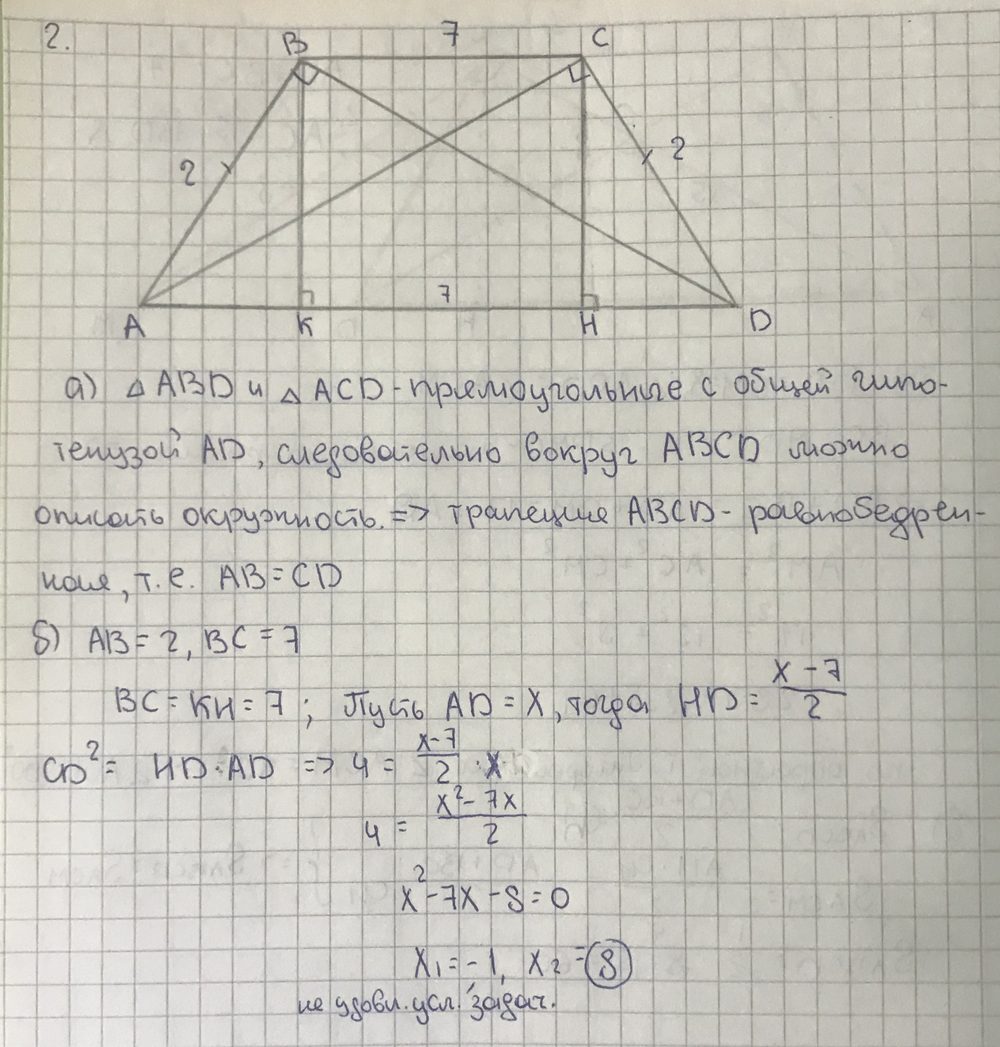 2.
B 7 C
2 2
7
A K H D
а) △ ABD и △ ACD - прямоугольные с общей гипо-
тенузой AD, следовательно вокруг ABCD можно
описать окружность. => трапеция ABCD - равнобедрен-
ная, т.е. AB = CD
б) AB = 2, BC = 7
BC = KH = 7 ; Пусть AD = x, тогда HD = (x - 7)/2
CD² = HD · AD => 4 = (x - 7)/2 · x
4 = (x² - 7x)/2
x² - 7x - 8 = 0
x₁ = -1, x₂ = 8
не удовл. усл. задач.